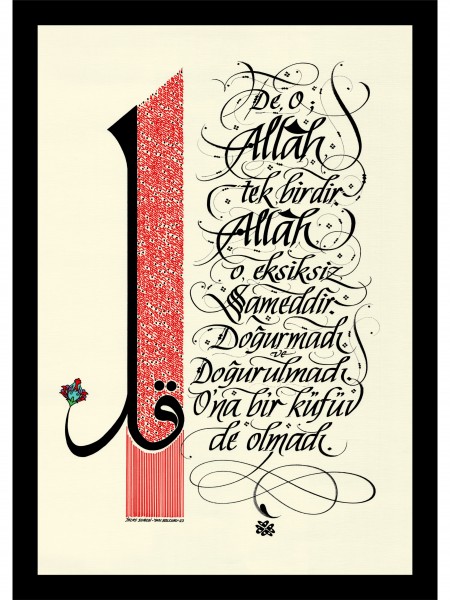 قل
De, O ;
Allâh,
tek birdir,
Allâh,
o, eksiksiz
Sameddîr.
Doğurmadı
ve
Doğurulmadı
O'na bir küfüv
de olmadı.
İHLAS SURESİ